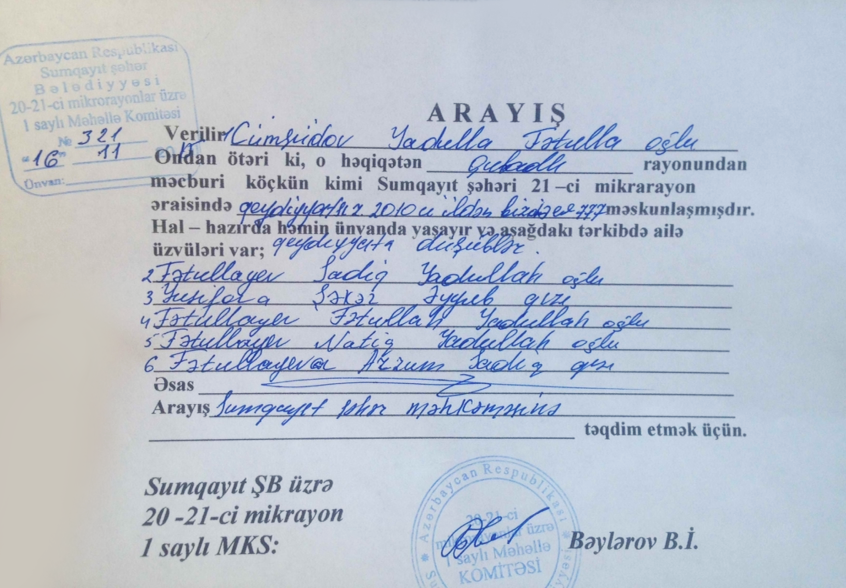 Azərbaycan Respublikası
Sumqayıt şəhər
Bələdiyyəsi
20-21-ci mikrorayonlar üzrə
1 saylı Məhəllə Komitəsi
№ 321
"16" 11
Ünvan:
ARAYIŞ
Verilir Cümşüdov Yadulla Fətulla oğlu
Ondan ötəri ki, o həqiqətən Qubadlı rayonundan
məcburi köçkün kimi Sumqayıt şəhəri 21 –ci mikrarayon
əraisində qeydiyyatsız 2010 cu ildən məskunlaşmışdır.
Hal – hazırda həmin ünvanda yaşayır və aşağdakı tərkibdə ailə
üzvüləri var; qeydiyyata düşüblər.
2 Fətullayev Sadiq Yadullah oğlu
3 Yusifova Şəkər Əyyub qızı
4 Fətullayev Fətullah Yadullah oğlu
5 Fətullayev Natiq Yadullah oğlu
6 Fətullayeva Arzum Sadiq qızı
Əsas
Arayış Sumqayıt şəhər məhkəməsinə
təqdim etmək üçün.
Sumqayıt ŞB üzrə
20 -21-ci mikrayon
1 saylı MKS:
Bəylərov B.İ.
Azərbaycan Respublikası
20-21-ci
mikrorayonlar üzrə
1 saylı Məhəllə
KOMİTƏSİ